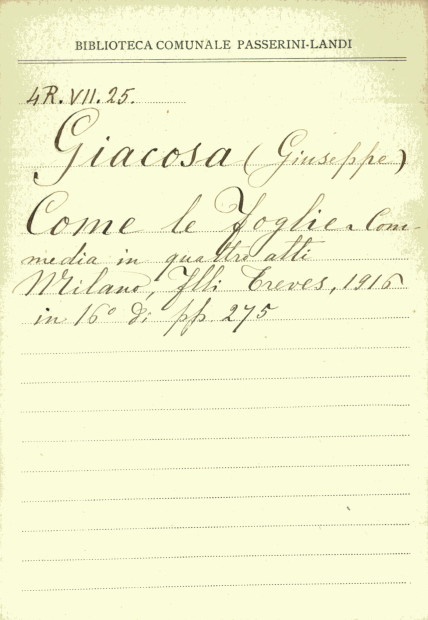 BIBLIOTECA COMUNALE PASSERINI-LANDI
4R.VII.25.
Giacosa (Giuseppe)
Come le Foglie - Com-
media in quattro atti
Milano, Flli Treves, 1916
in 16° di pp. 275